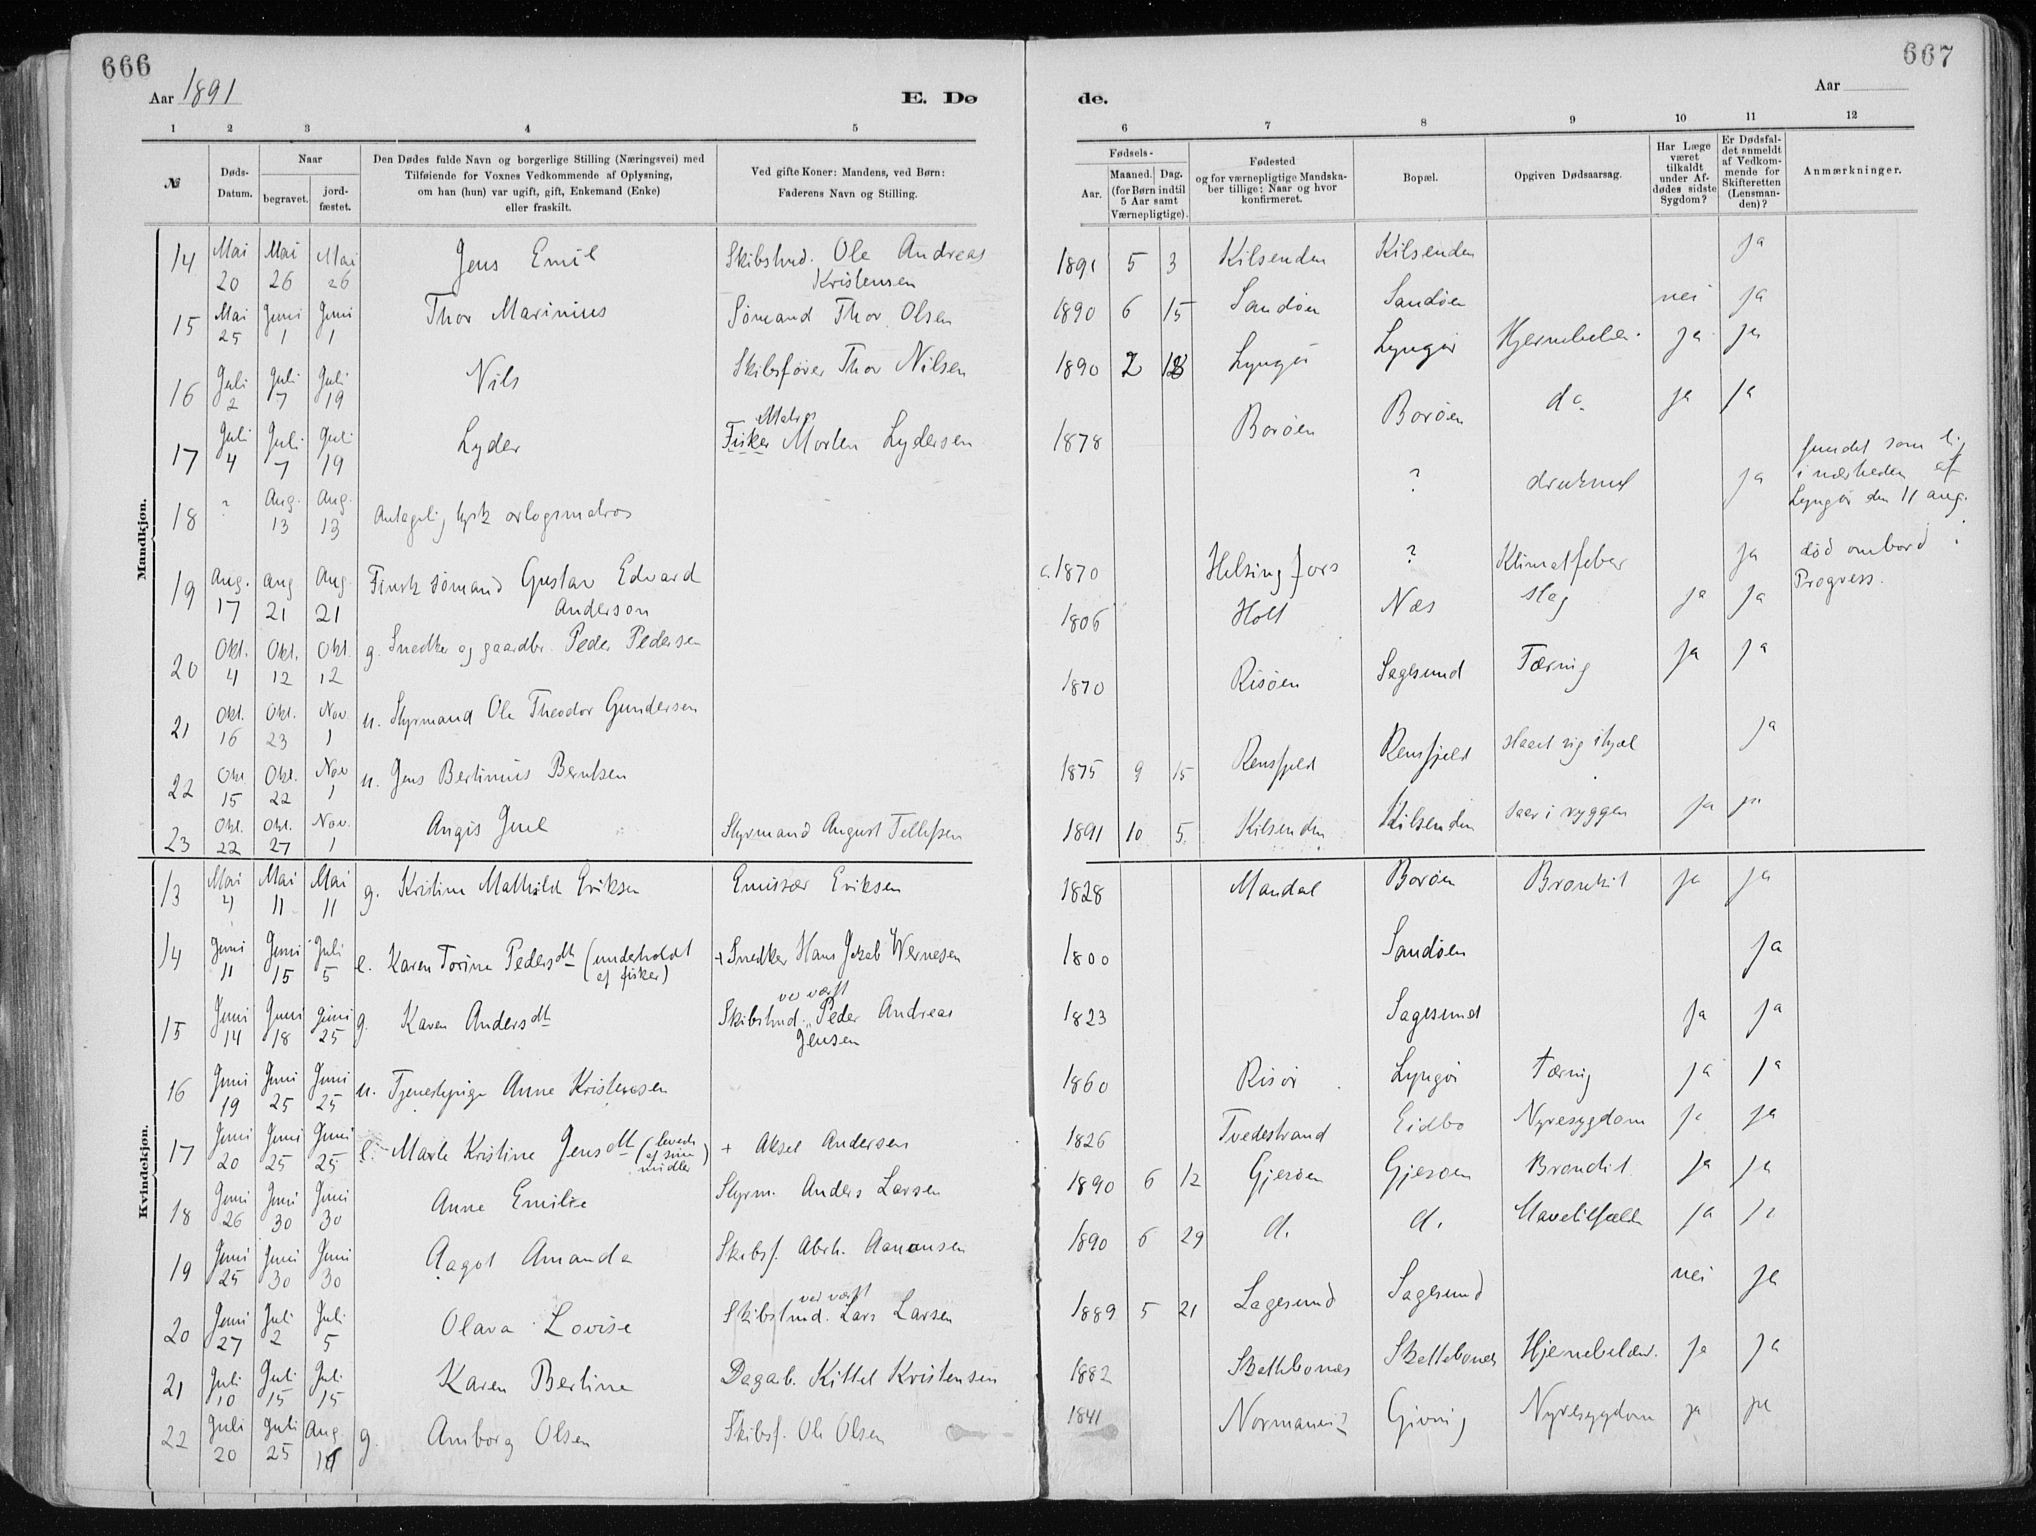 666
667
Aar 1891
E. Dø
de.
Aar
1 2 3 4 5
6 7 8 9 10 11 12
№
Døds-
Datum.
Naar
begravet.
jord-
fæstet.
Den Dødes fulde Navn og borgerlige Stilling (Næringsvei) med
Tilføiende for Voxnes Vedkommende af Oplysning,
om han (hun) var ugift, gift, Enkemand (Enke)
eller fraskilt.
Ved gifte Koner: Mandens, ved Børn:
Faderens Navn og Stilling.
Fødsels-
Aar.
Maaned. Dag.
(for Børn indtil
5 Aar samt
Værnepligtige).
Fødested
og for værnepligtige Mandska-
ber tillige: Naar og hvor
konfirmeret.
Bopæl.
Opgiven Dødsaarsag.
Har Læge
været
tilkaldt
under Af-
dødes sidste
Sygdom?
Er Dødsfal-
det anmeldt
af Vedkom-
mende for
Skifteretten
(Lensman-
den)?
Anmærkninger.
Mandkjøn.
14 Mai 20 Mai 26 Mai 26 Jens Emil Skibstmd. Ole Andreas Kristensen 1891 5 3 Kilsenden Kilsenden ja
15 Mai 25 Juni 1 Juni 1 Thor Marinius Sømand Thor Olsen 1890 6 15 Sandøen Sandøen nei ja
16 Juli 2 Juli 7 Juli 19 Nils Skibsfører Thor Nilsen 1890 2 Lyngør Lyngør ja ja
17 Juli 4 Juli 7 Juli 19 Lyder Fisker Morten Lydersen 1878 Borøen Borøen do. ja ja
18 ? Aug. 13 Aug. 13 Antagelig tysk orlogsmatros ? druknet ja fundet som lig
i nærheden af
Lyngør den 11 aug.
19 Aug. 17 aug 21 Aug. 21 Finsk sømand Gustav Edvard Anderson c. 1870 Helsingfors ? Klimatfeber ja død ombord i
Progress.
20 Okt. 4 Okt. 12 Okt. 12 g. Snedker og gaardbr. Peder Pedersen 1806 Holt Næs slag ja ja
21 Okt. 16 Okt. 23 Nov 1 u. Styrmand Ole Theodor Gundersen 1870 Risøen Sagesund Tæring ja ja
22 Okt 15 Okt. 22 Nov 1 u. Jens Bertinius Berntsen 1875 9 15 Rensfjeld Rensfjeld slaaet sig ihjæl ja
23 Okt. 22 Okt. 27 Nov. 1 Angis Juel Styrmand August Tellefsen 1891 10 5 Kilsenden Kilsenden saar i ryggen ja ja
Kvindekjøn.
13 Mai 4 Mai 11 Mai 11 g. Kristine Mathilde Eriksen Emissær Eriksen 1828 Mandal Borøen Bronkit ja ja
14 Juni 11 Juni 15 Juli 5 e. Karen Torine Pedersdtt (underholdt af fisker) + Snedker Hans Jakob Wernesen 1800 Sandøen ja
15 Juni 14 Juni 18 Juni 25 g. Karen Andersdtt Skibstmd. ved værft Peder Andreas Jensen 1823 Sagesund ja ja
16 Juni 19 Juni 25 Juni 25 u. Tjenestepige Anne Kristensen 1860 Risør Lyngør Tæring ja ja
17 Juni 20 Juni 25 Juni 25 e. Marte Kristine Jensdtt (levede af sine midler) + Aksel Andersen 1826 Tvedestrand Eidbo Nyresygdom ja ja
18 Juni 26 Juni 30 Juni 30 Anne Emilie Styrm. Anders Larsen 1890 6 12 Gjesøen Gjesøen Bronkit ja ja
19 Juni 25 Juni 30 Juni 30 Aagot Amanda Skibsf. Abrh. Aanonsen 1890 6 29 d. d. Mavetilfælde ja ja
20 Juni 27 Juli 2 Juli 5 Olava Lovise Skibstmd. ved værft Lars Larsen 1889 5 21 Sagesund Sagesund nei ja
21 Juli 10 Juli 15 Juli 15 Karen Bertine Dagarb. Kittel Kristensen 1882 Skottebonæs Skottebonæs ja ja
22 Juli 20 Juli 25 Aug g. Amborg Olsen Skibsf. Ole Olsen 1841 Givning Nyresygdom ja ja